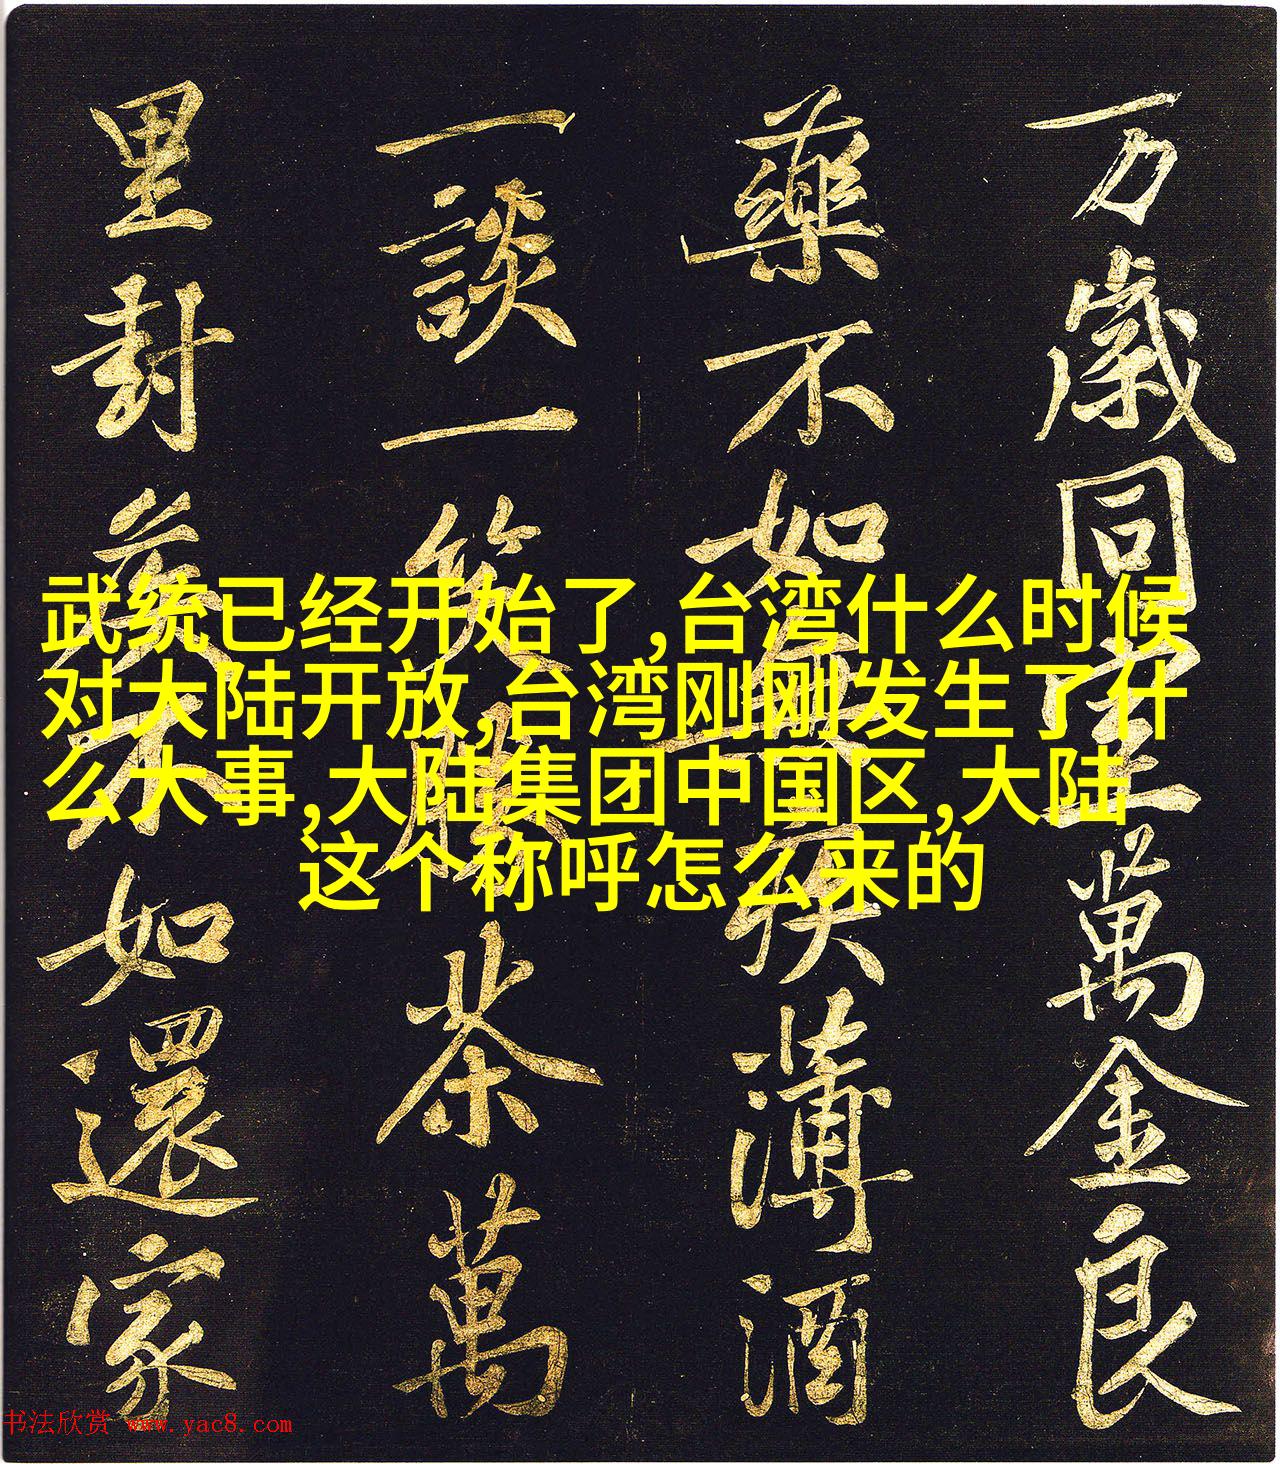 万歲同萬金良
藥不如無疾薄酒
一談一笑勝茶萬
里封侯不如還家
武统已经开始了,台湾什么时候
对大陆开放,台湾刚刚发生了什
么大事,大陆集团中国区,大陆
这个称呼怎么来的
书法欣赏 www.yac8.com